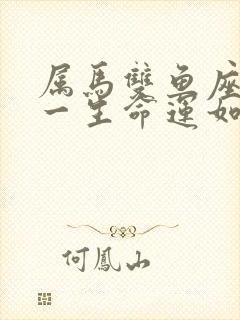 属馬雙魚座
一生命運如
何鳳山